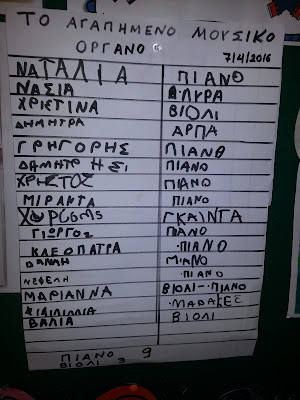 ΤΟ ΑΓΑΠΗΜΕΝΟ ΜΟΥΣΙΚΟ
ΟΡΓΑΝΟ
7/4/2016
ΝΑΤΑΛΙΑ ΠΙΑΝΟ
ΝΑΣΙΑ ΛΥΡΑ
ΧΡΙΣΤΙΝΑ ΒΙΟΛΙ
ΔΗΜΗΤΡΑ ΑΡΠΑ
ΓΡΗΓΟΡΗΣ ΠΙΑΝΟ
ΔΗΜΗΤΡΗΣ ΠΙΑΝΟ
ΧΡΗΣΤΟΣ ΠΙΑΝΟ
ΜΙΡΑΝΤΑ ΠΙΑΝΟ
ΓΚΑΙΝΤΑ
ΓΙΩΡΓΟΣ ΠΑΝΟ
ΚΛΕΟΠΑΤΡΑ ΠΙΑΝΟ
ΔΑΝΑΗ ΜΙΑΝΟ
ΝΕΦΕΛΗ ΠΙΑΝΟ
ΜΑΡΙΑΝΝΑ ΒΙΟΛΙ-ΠΙΑΝΟ
ΜΑΡΑΚΕΣ
ΒΑΛΙΑ ΒΙΟΛΙ
ΠΙΑΝΟ 9
ΒΙΟΛΙ 3